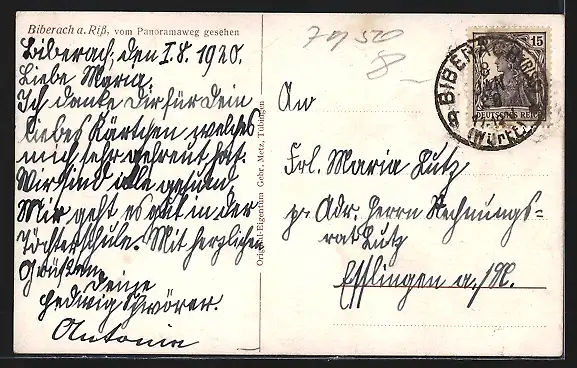 Biberach a. Riß, vom Panoramaweg gesehen
Biberach, den 1.8.1920.
Liebe Maria.
Ich danke Dir für Dein
liebes Kärtchen welches
mich sehr gefreut hat.
Wir sind alle gesund.
Mir geht es gut in der
Töchterschule. Mit herzlichen
Grüßen
Deine
Hedwig
Antonie
Original-Eigentum Gebr. Metz, Tübingen
7950
8-
An
Frl. Maria Lutz
p. Adr. Herrn Rechnungs=
rat Lutz
Esslingen a./N.
15
DEUTSCHES REICH
BIBERACH (RISS)
(Württ.)